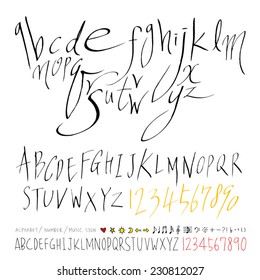 abcdefghijklm
nopqrstuvwxyz
ABCDEFGHIJKLMNOPQR
STUVWXYZ 1234567890
ALPHABET / NUMBER / MUSIC ICON
ABCDEFGHIJKLMNOPQRSTUVWXYZ 1234567890
www.shutterstock.com · 230812027